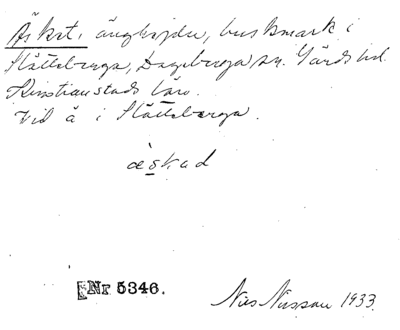 Äskat, änghöjder, buskmark i
Slätteberga, Degeberga sn. Gärds hd.
Kristianstads län.
Vid å i Slätteberga.
æskad
Nr 5346.
Nils Nilsson 1933.